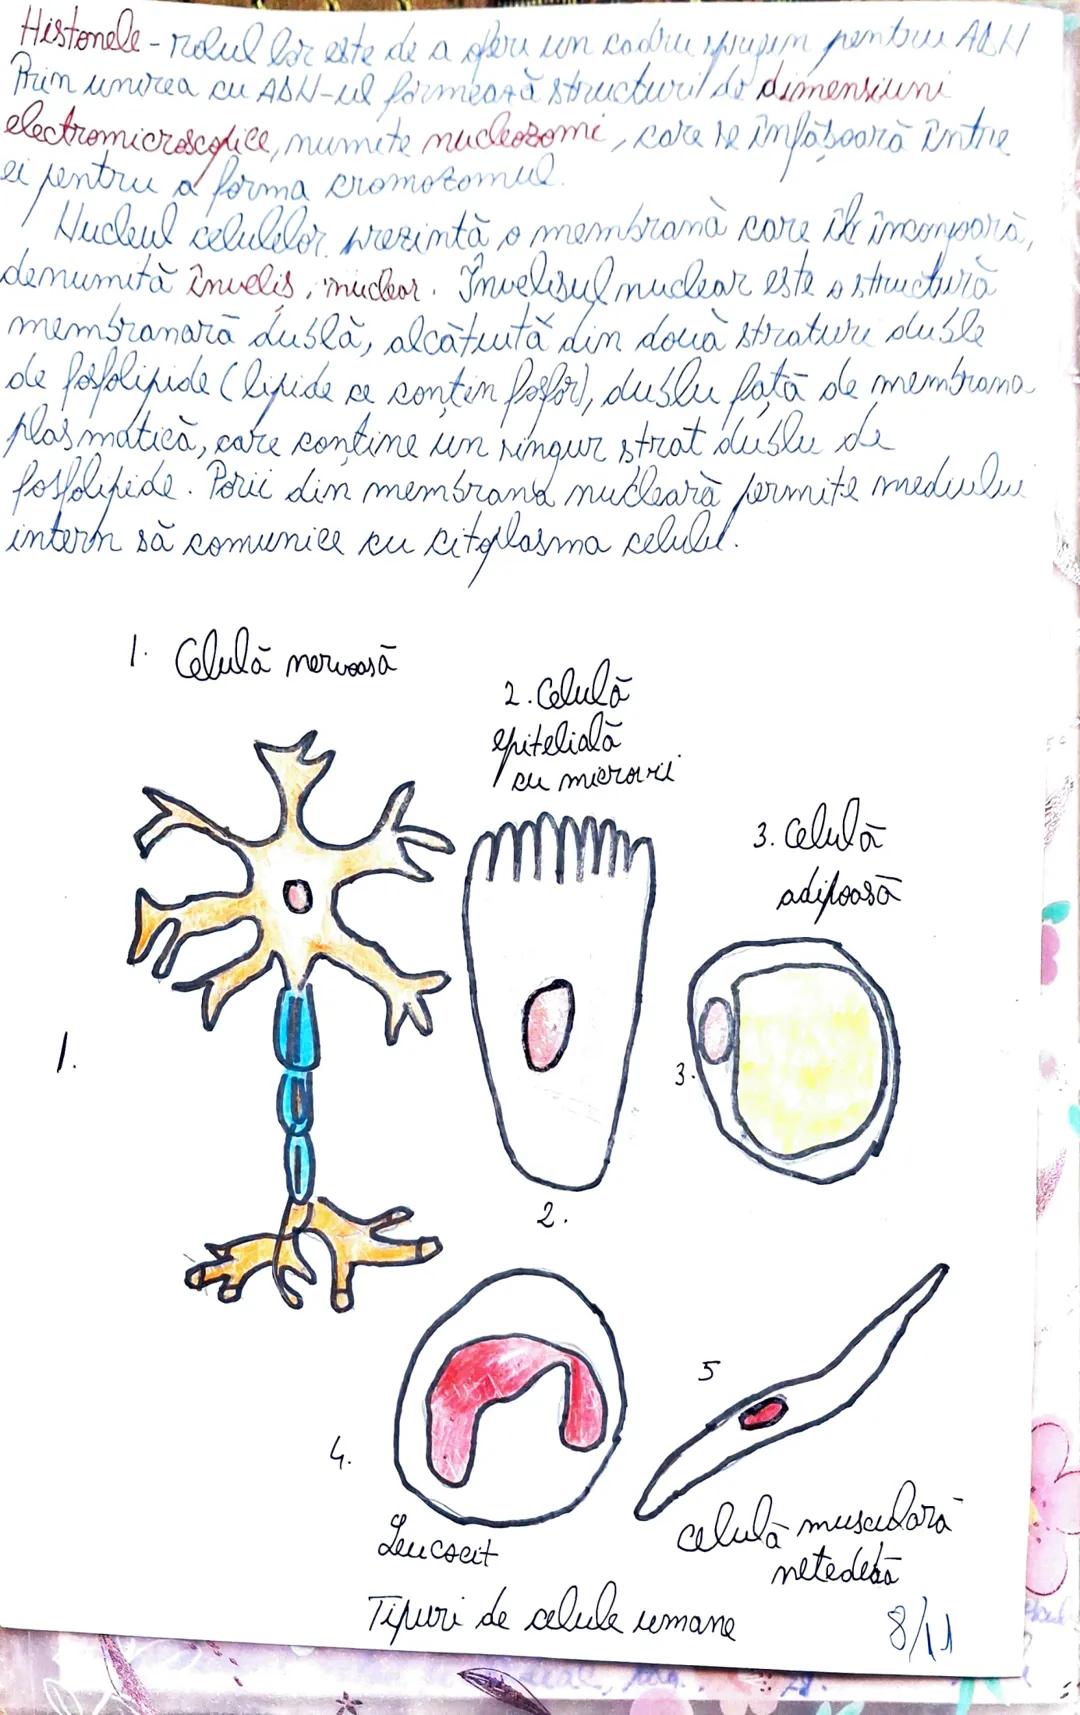 Histonele - rolul lor este de a oferi un cadru sprijin pentru ADN
Prin unirea cu ADN-ul formează structuri de dimensiuni
electromicroscopice, numite nucleozomi, care se înfășoară între
ei pentru a forma cromozomul.
Nucleul celulelor prezintă o membrană care îl înconjoară,
denumită înveliș nuclear. Învelișul nuclear este o structură
membranară dublă, alcătuită din două straturi duble
de fosfolipide (lipide ce conțin fosfor), dublu față de membrana
plasmatică, care conține un singur strat dublu de
fosfolipide. Porii din membrana nucleară permite mediului
intern să comunice cu citoplasma celulei.
1. Celulă nervoasă
2. Celulă
epitelială
cu microvili
3. Celulă
adipoasă
1.
3.
2.
5
4.
Leucocit
celulă musculară
netedă
Tipuri de celule umane
8/11